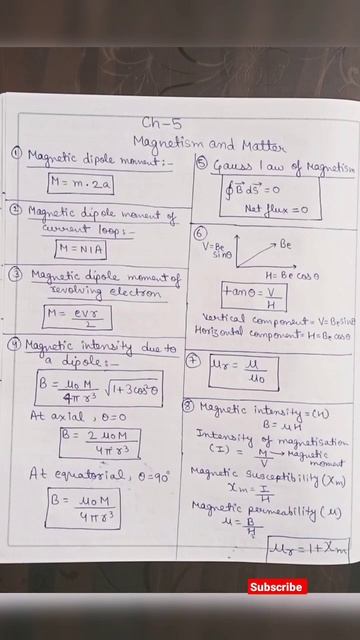 Ch-5
Magnetism and Matter
① Magnetic dipole moment:-
M = m·2a
② Magnetic dipole moment of
current loop:-
M = NIA
③ Magnetic dipole moment of
revolving electron
M = evr/2
④ Magnetic intensity due to
a dipole:-
B = μ₀M/4πr³ √1+3cos²θ
At axial, θ=0
B = 2μ₀M/4πr³
At equatorial, θ=90°
B = μ₀M/4πr³
⑤ Gauss law of Magnetism
∮B⃗ ds⃗ = 0
Net flux = 0
⑥
V=Be sinθ
Be
H = Be cosθ
tanθ = V/H
Vertical component = V=Be sinθ
Horizontal component = H=Be cosθ
⑦ μr = μ/μ₀
⑧ Magnetic intensity = (H)
B = μH
Intensity of magnetisation
(I) = M/V → Magnetic moment
Magnetic susceptibility (Xm)
Xm = I/H
Magnetic permeability (μ)
μ = B/H
μr = 1+Xm
Subscribe